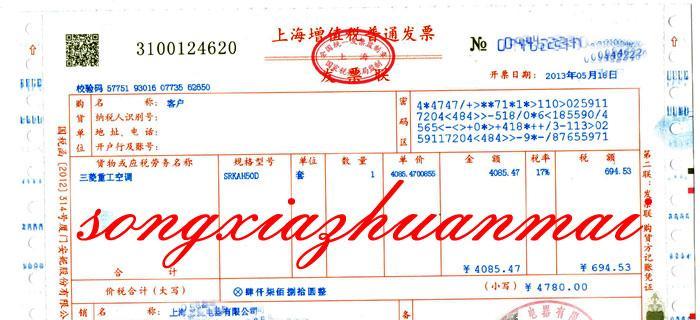 3100124620
上海增值税普通发票
全国统一发票监制章
上海
国家税务总局监制
发票联
№
开票日期：2013年05月18日
校验码 57751 93016 07735 62650
购货单位
名称：客户
纳税人识别号：
地址、电话：
开户行及账号：
密码区
4*4747/+>**71*1*>110>025911
7204<484>>-518/0*6<185590/4
565<-<>+0*>+418*++/3-113>02
59117204<484>>-9*-/87655971
货物或应税劳务名称 规格型号 单位 数量 单价 金额 税率 税额
三菱重工空调 SRKAH50D 套 1 4085.4700855 4085.47 17% 694.53
songxiazhuanmai
合计 ￥4085.47 ￥694.53
价税合计（大写） ⊗肆仟柒佰捌拾圆整 （小写）￥4780.00
销 名称：上海 电器有限公司
电器有限公
国税函[2012]314号厦门安妮股份有限公
第二联：发票联 购货方记账凭证